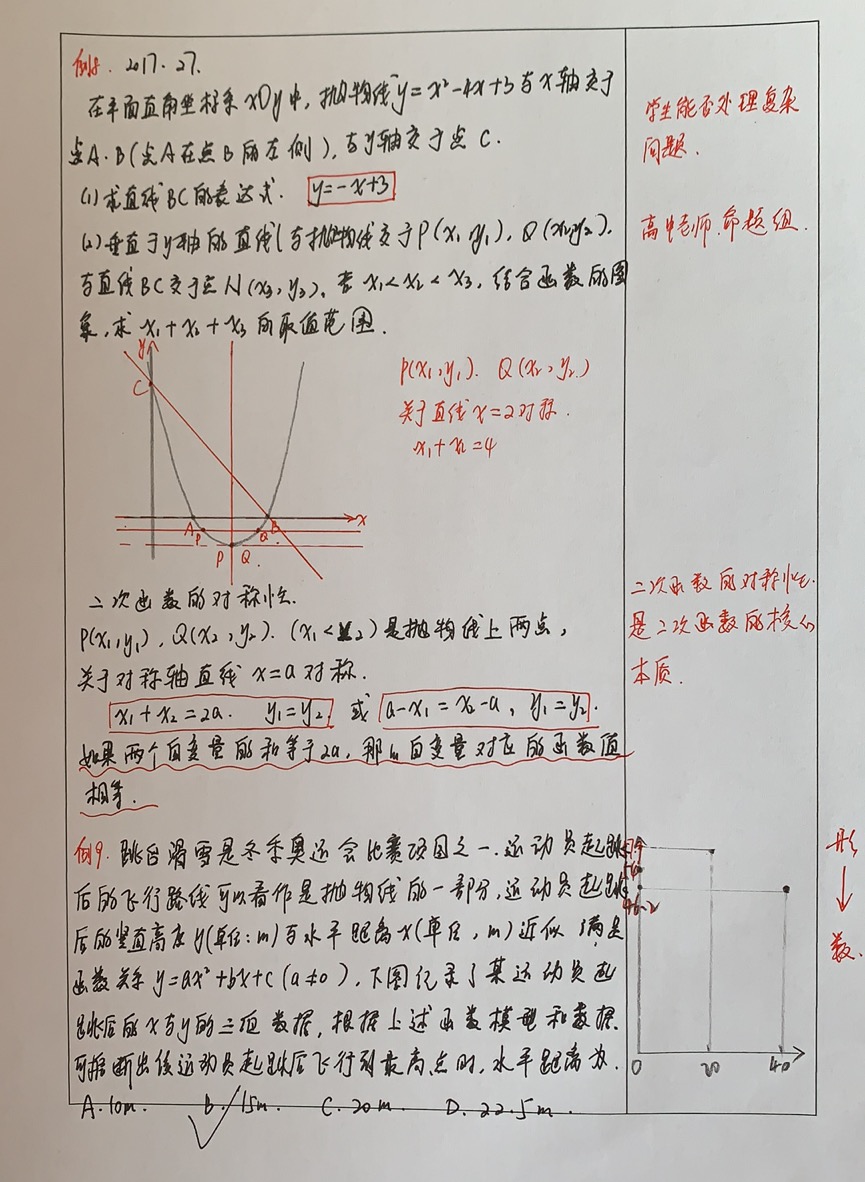 例8. 2017·27.
在平面直角坐标系xOy中, 抛物线y=x²-4x+3与x轴交于
点A.B(点A在点B的左侧), 与y轴交于点C.
(1)求直线BC的表达式. y=-x+3
(2)垂直于y轴的直线l与抛物线交于P(x₁,y₁), Q(x₂,y₂),
与直线BC交于点N(x₃,y₃), 若x₁<x₂<x₃, 结合函数的图
象, 求x₁+x₂+x₃的取值范围.
学生能否处理复杂
问题.
高中老师.命题组.
y
C
A
B
x
P
Q
P
Q
P(x₁,y₁). Q(x₂,y₂)
关于直线x=2对称.
x₁+x₂=4
二次函数的对称性.
P(x₁,y₁), Q(x₂,y₂). (x₁<x₂)是抛物线上两点,
关于对称轴直线x=a对称.
x₁+x₂=2a. y₁=y₂ 或 a-x₁=x₂-a, y₁=y₂.
如果两个自变量的和等于2a, 那么自变量对应的函数值
相等.
二次函数的对称性.
是二次函数的核心
本质.
例9. 跳台滑雪是冬季奥运会比赛项目之一.运动员起跳
后的飞行路线可以看作是抛物线的一部分,运动员起跳
后的竖直高度y(单位:m)与水平距离x(单位,m)近似满足
函数关系y=ax²+bx+c(a≠0), 下图记录了某运动员起
跳后的x与y的三项数据, 根据上述函数模型和数据.
可推断出该运动员起跳后飞行到最高点时, 水平距离为.
A.10m. B.15m. C.20m. D.22.5m.
46.2
0
20
40
形
↓
数.